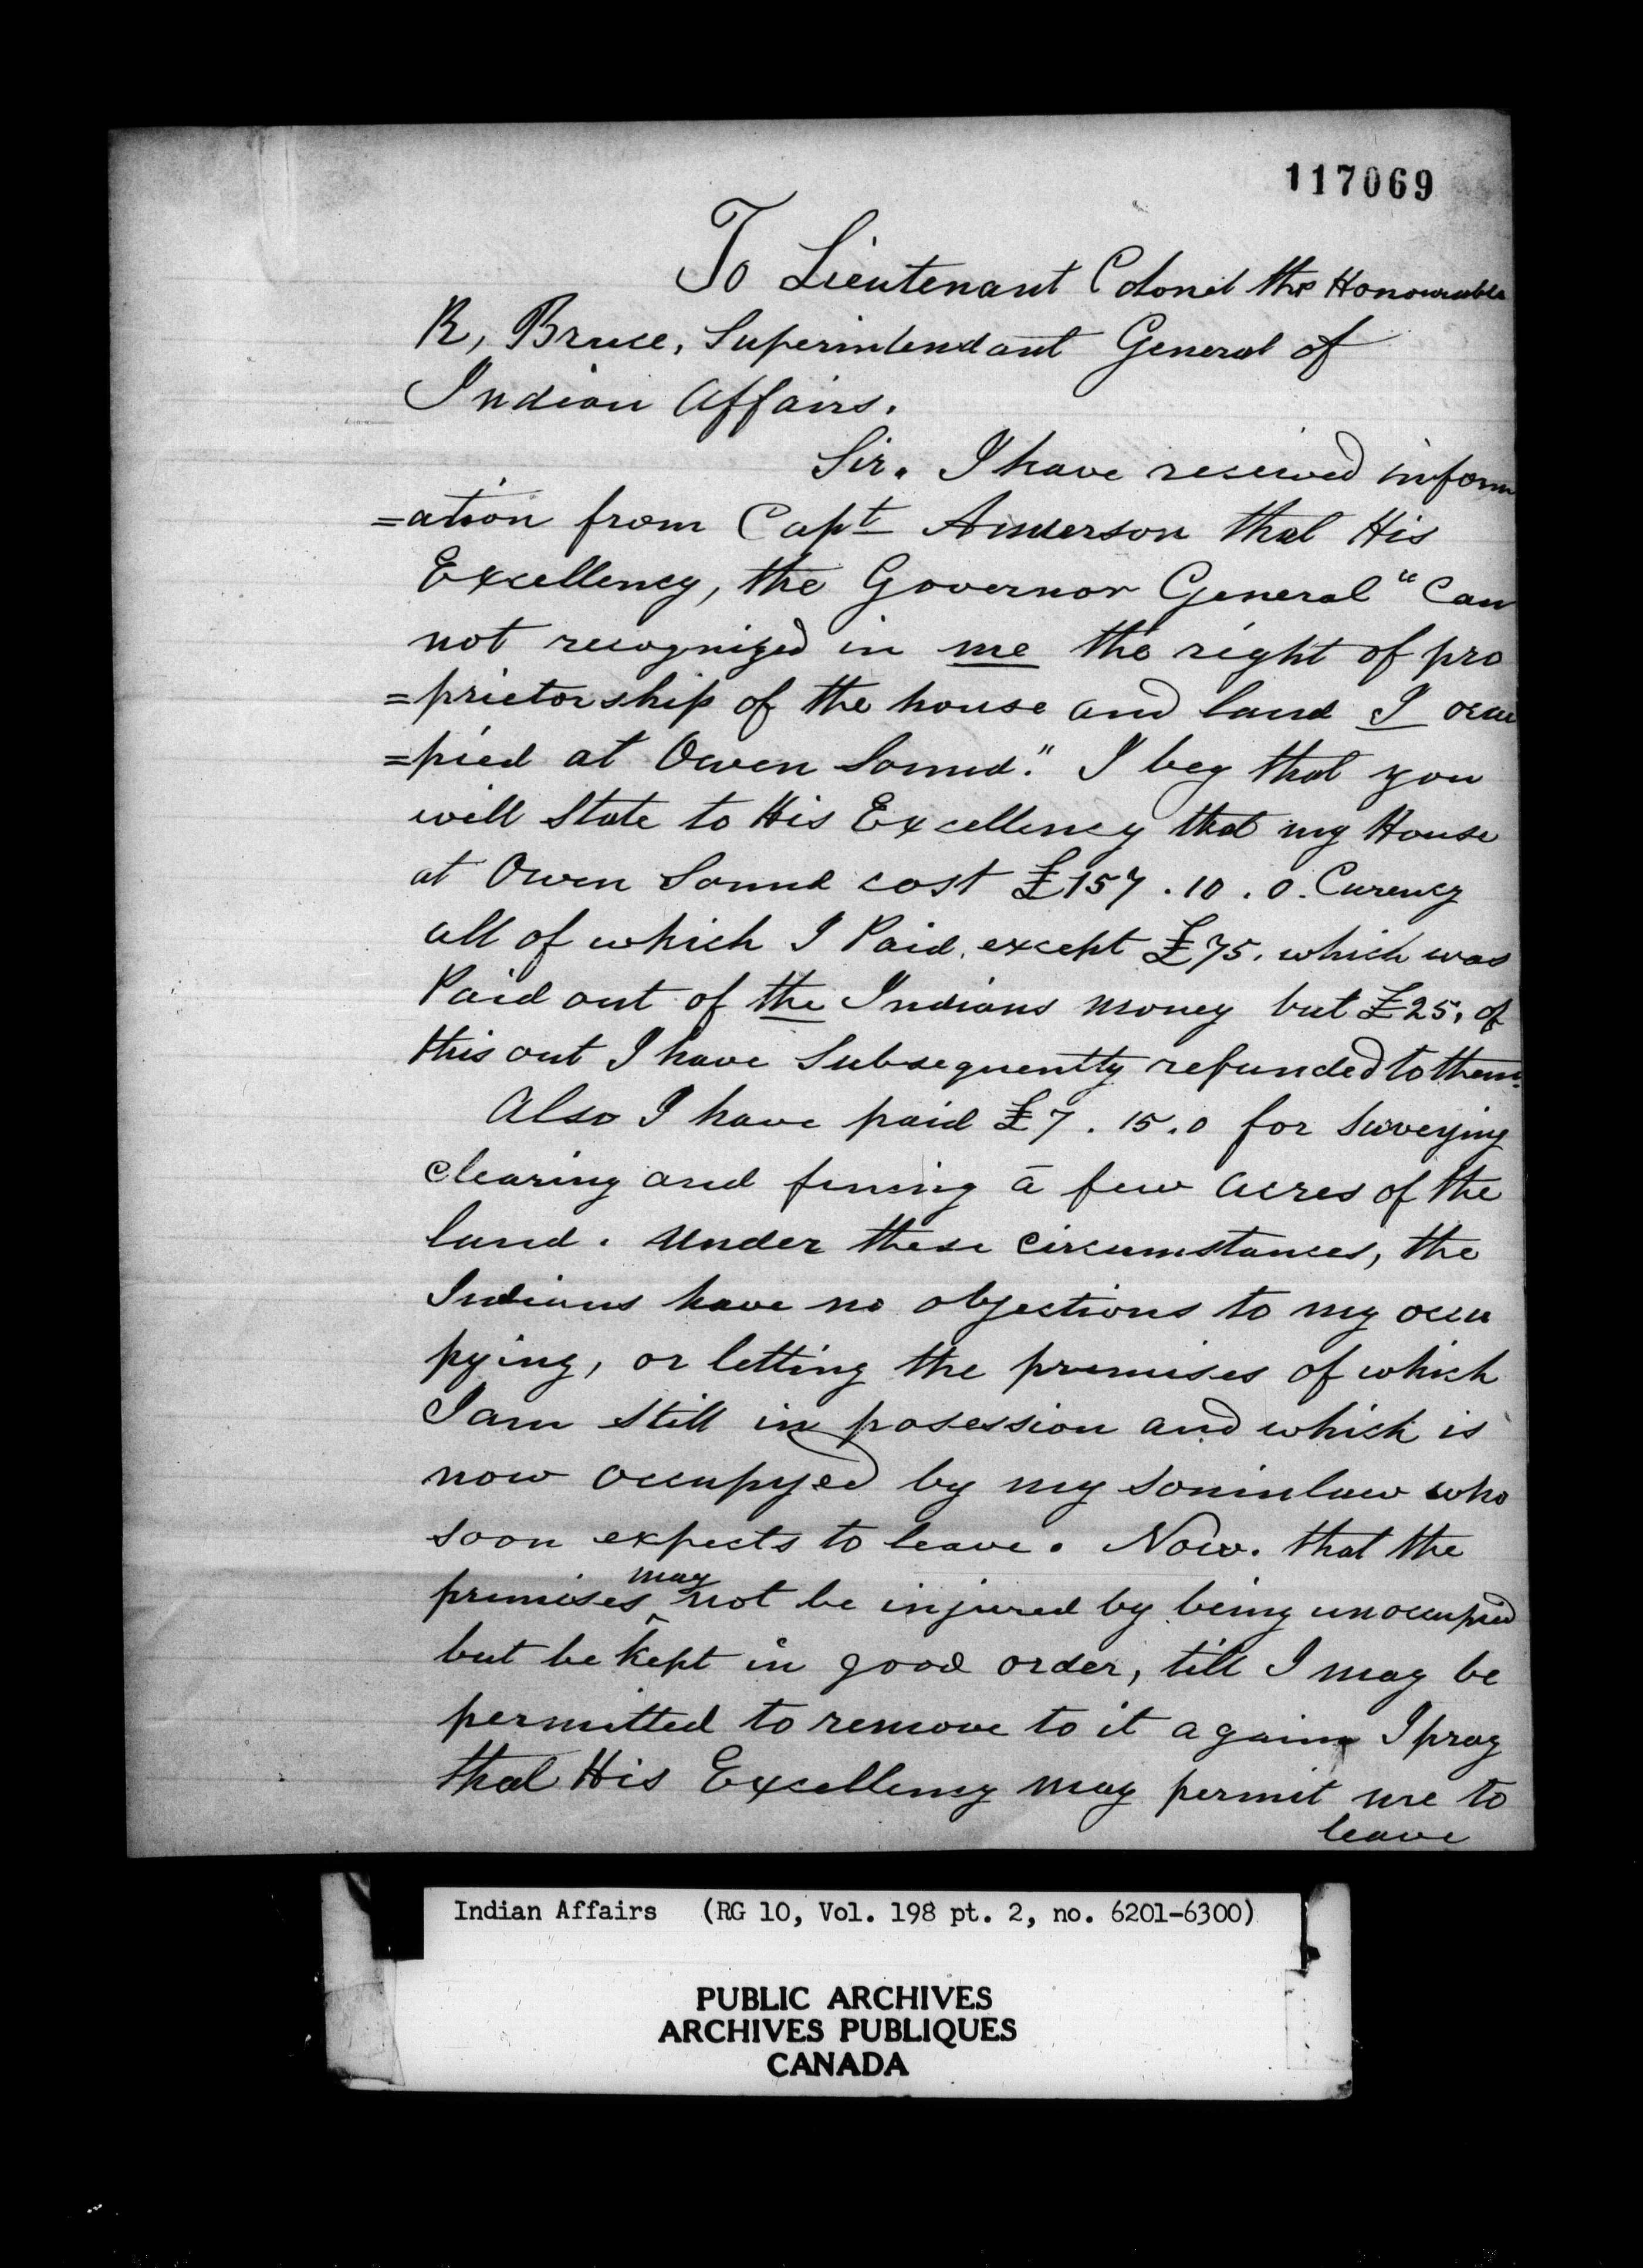 117069
To Lieutenant Colonel the Honourable
R, Bruce, Superintendant General of
Indian Affairs.
Sir. I have received inform
=ation from Capt Anderson that His
Excellency, the Governor General "Can
not recognized in me the right of pro
=prietorship of the house and land I occu
=pied at Owen Sound." I beg that you
will State to His Excellency that my House
at Owen Sound cost £157.10.0. Curency
all of which I Paid, except £75. which was
Paid out of the Indians money but £25, of
this out I have Subsequently refunded to them.
Also I have paid £7.15.0 for Surveying
clearing and fencing a few acres of the
land. Under these circumstances, the
Indians have no objections to my occu
pying, or letting the premises of which
I am still in posession and which is
now occupyed by my soninlaw who
soon expects to leave. Now. that the
premises may not be injured by being unoccupied
but be kept in good order, till I may be
permitted to remove to it again I pray
that His Excellency may permit me to
leave
Indian Affairs (RG 10, Vol. 198 pt. 2, no. 6201-6300)
PUBLIC ARCHIVES
ARCHIVES PUBLIQUES
CANADA